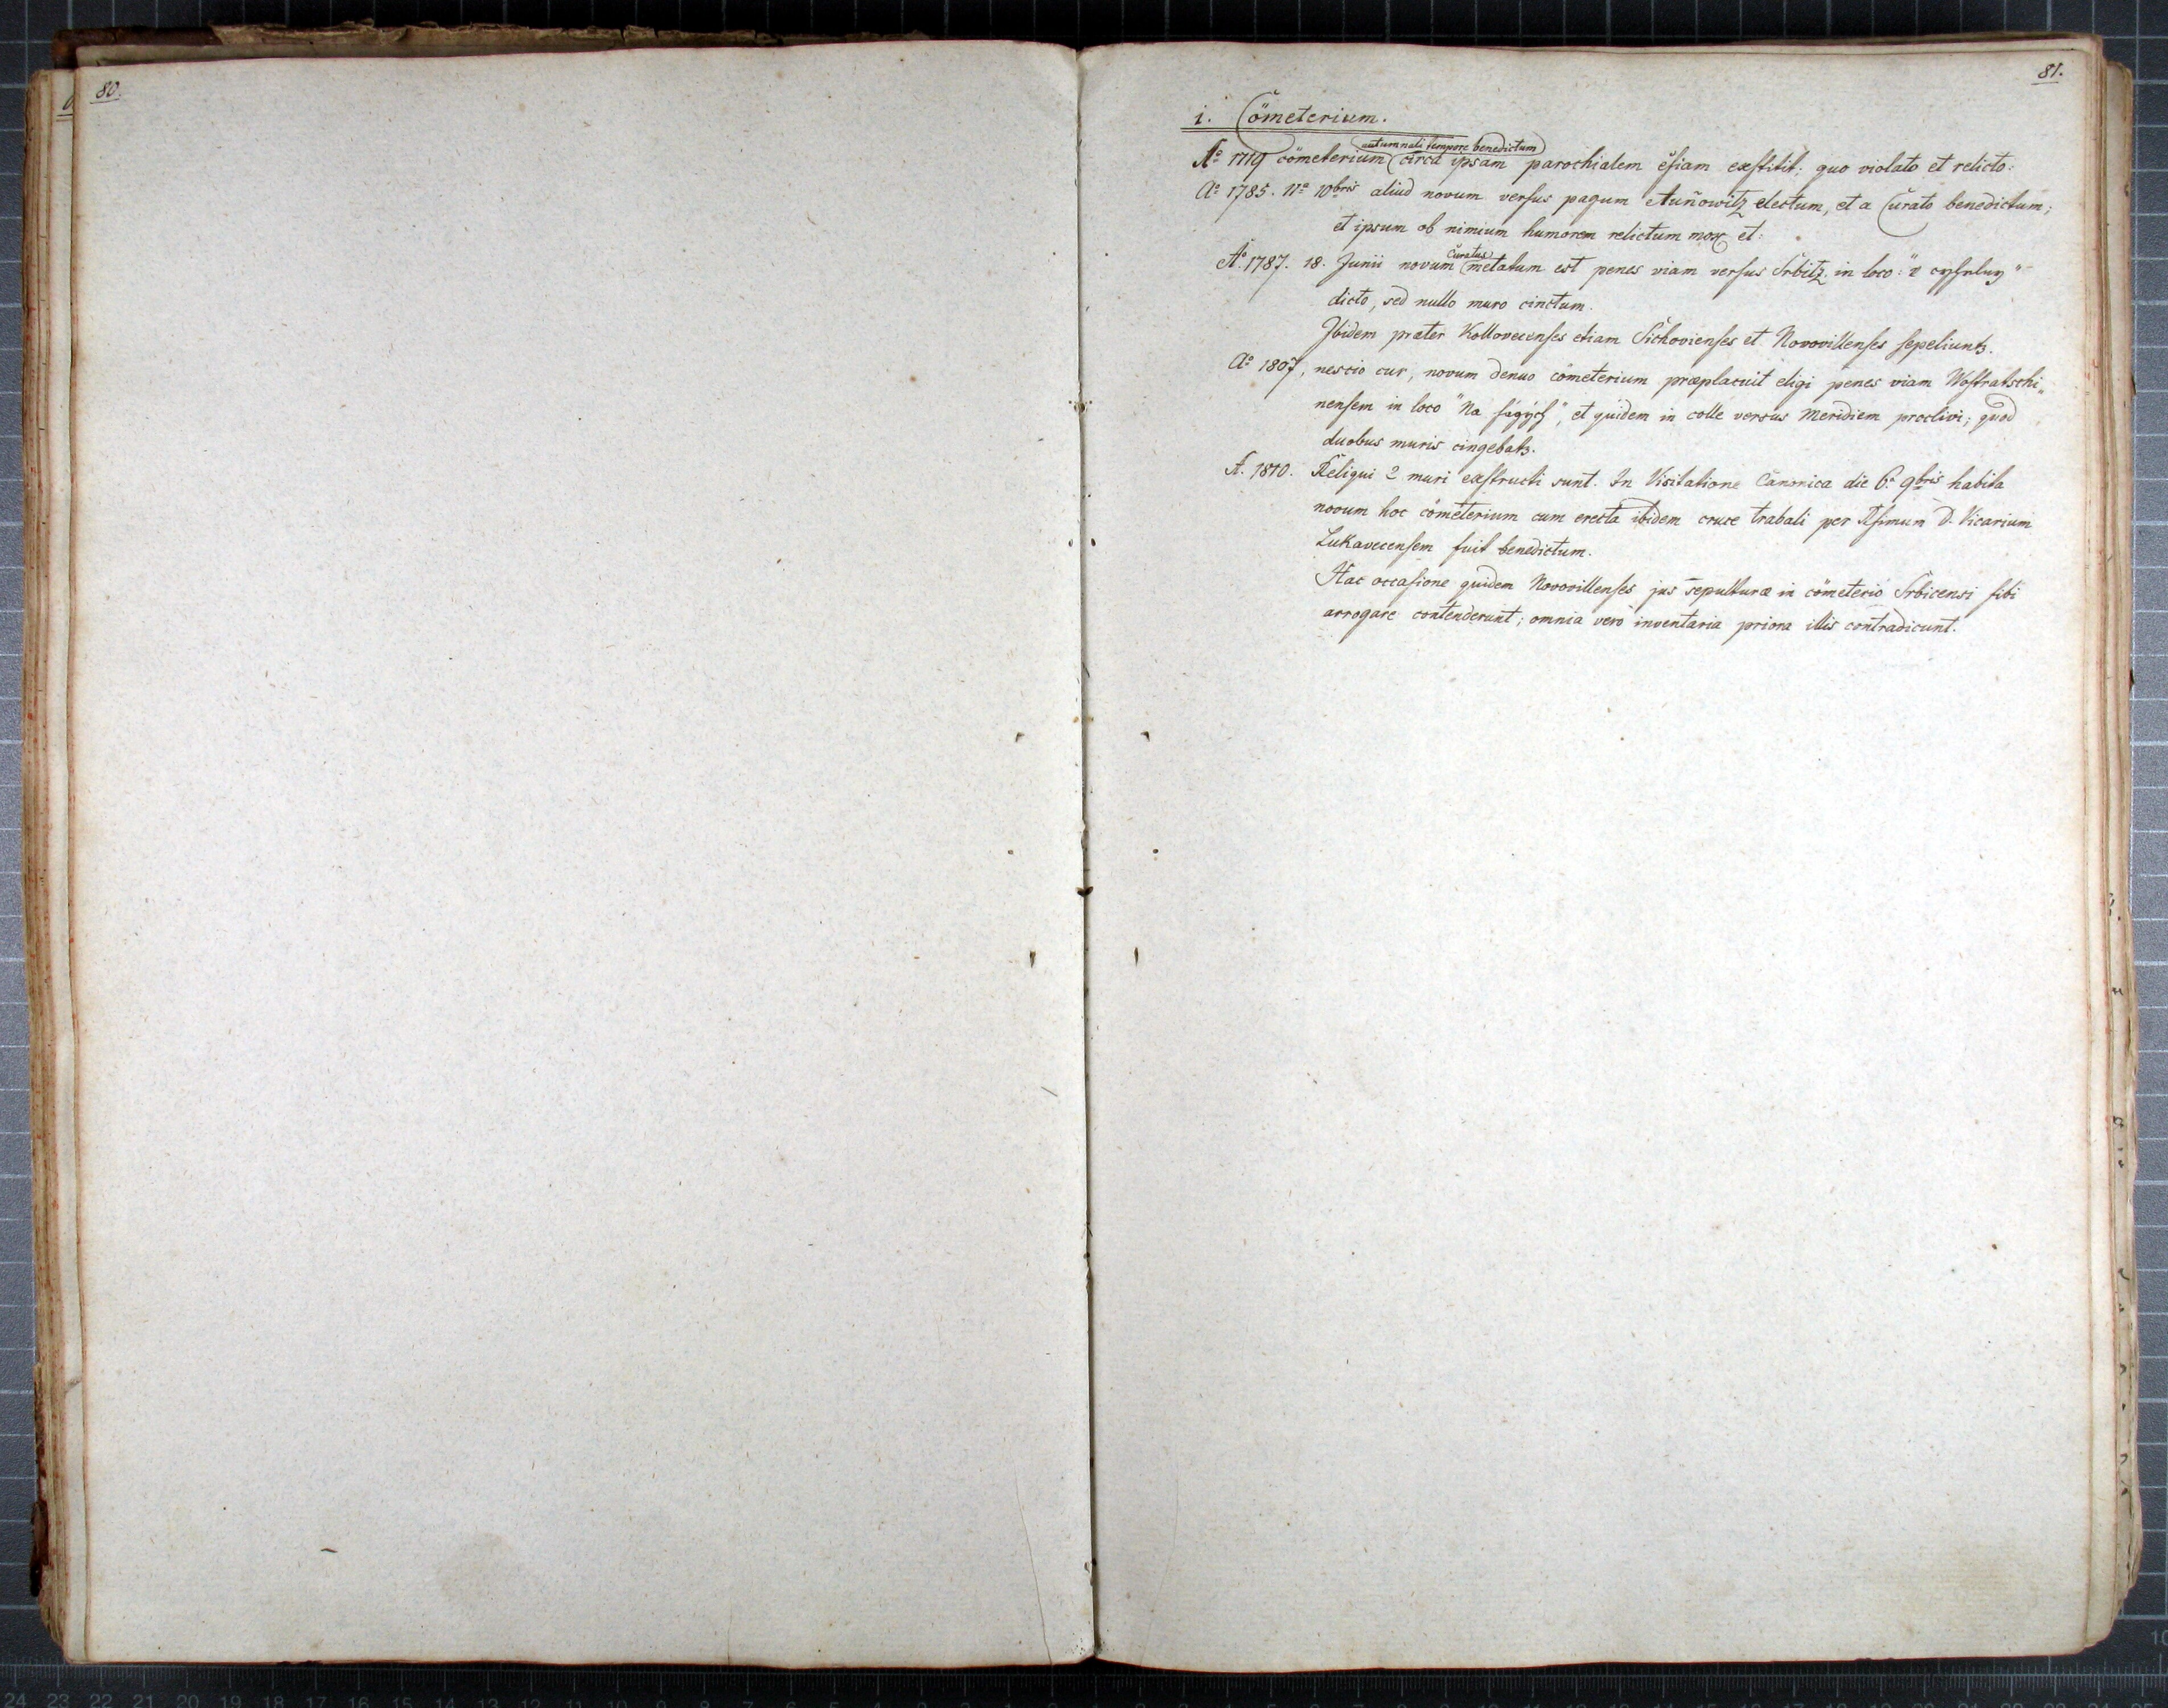 80.
81.
i. Cömeterium.
autumnali tempore benedictum
Ao 1719 cömeterium circa ipsam parochialem ecsiam exstitit; quo violato et relicto:
Ao 1785. 11a 10bris aliud novum versus pagum Auñowitz electum, et a Curato benedictum;
et ipsum ob nimium humorem relictum mox et:
Curatus
Ao 1787. 18. Junii novum metatum est penes viam versus Srbitz. in loco: "v
dicto, sed nullo muro cinctum.
Ibidem præter Kollovecenses etiam Sichovienses et Novovillenses sepeliuntr.
Ao 1807, nescio cur, novum denuo cömeterium præplacuit eligi penes viam Wostratschi„
nensem in loco "Na et quidem in colle versus Meridiem proclivi; quod
duobus muris cingebatr.
A. 1810. Reliqui 2 muri exstructi sunt. In Visitatione Canonica die 6a 9bris habita
novum hoc cömeterium cum erecta ibidem cruce trabali per Rssimum D. Vicarium
Lukavecensem fuit benedictum.
Hac occasione quidem Novovillenses jus sepulturæ in cömeterio Srbicensi sibi
arrogare contenderunt; omnia vero inventaria priora illis contradicunt.